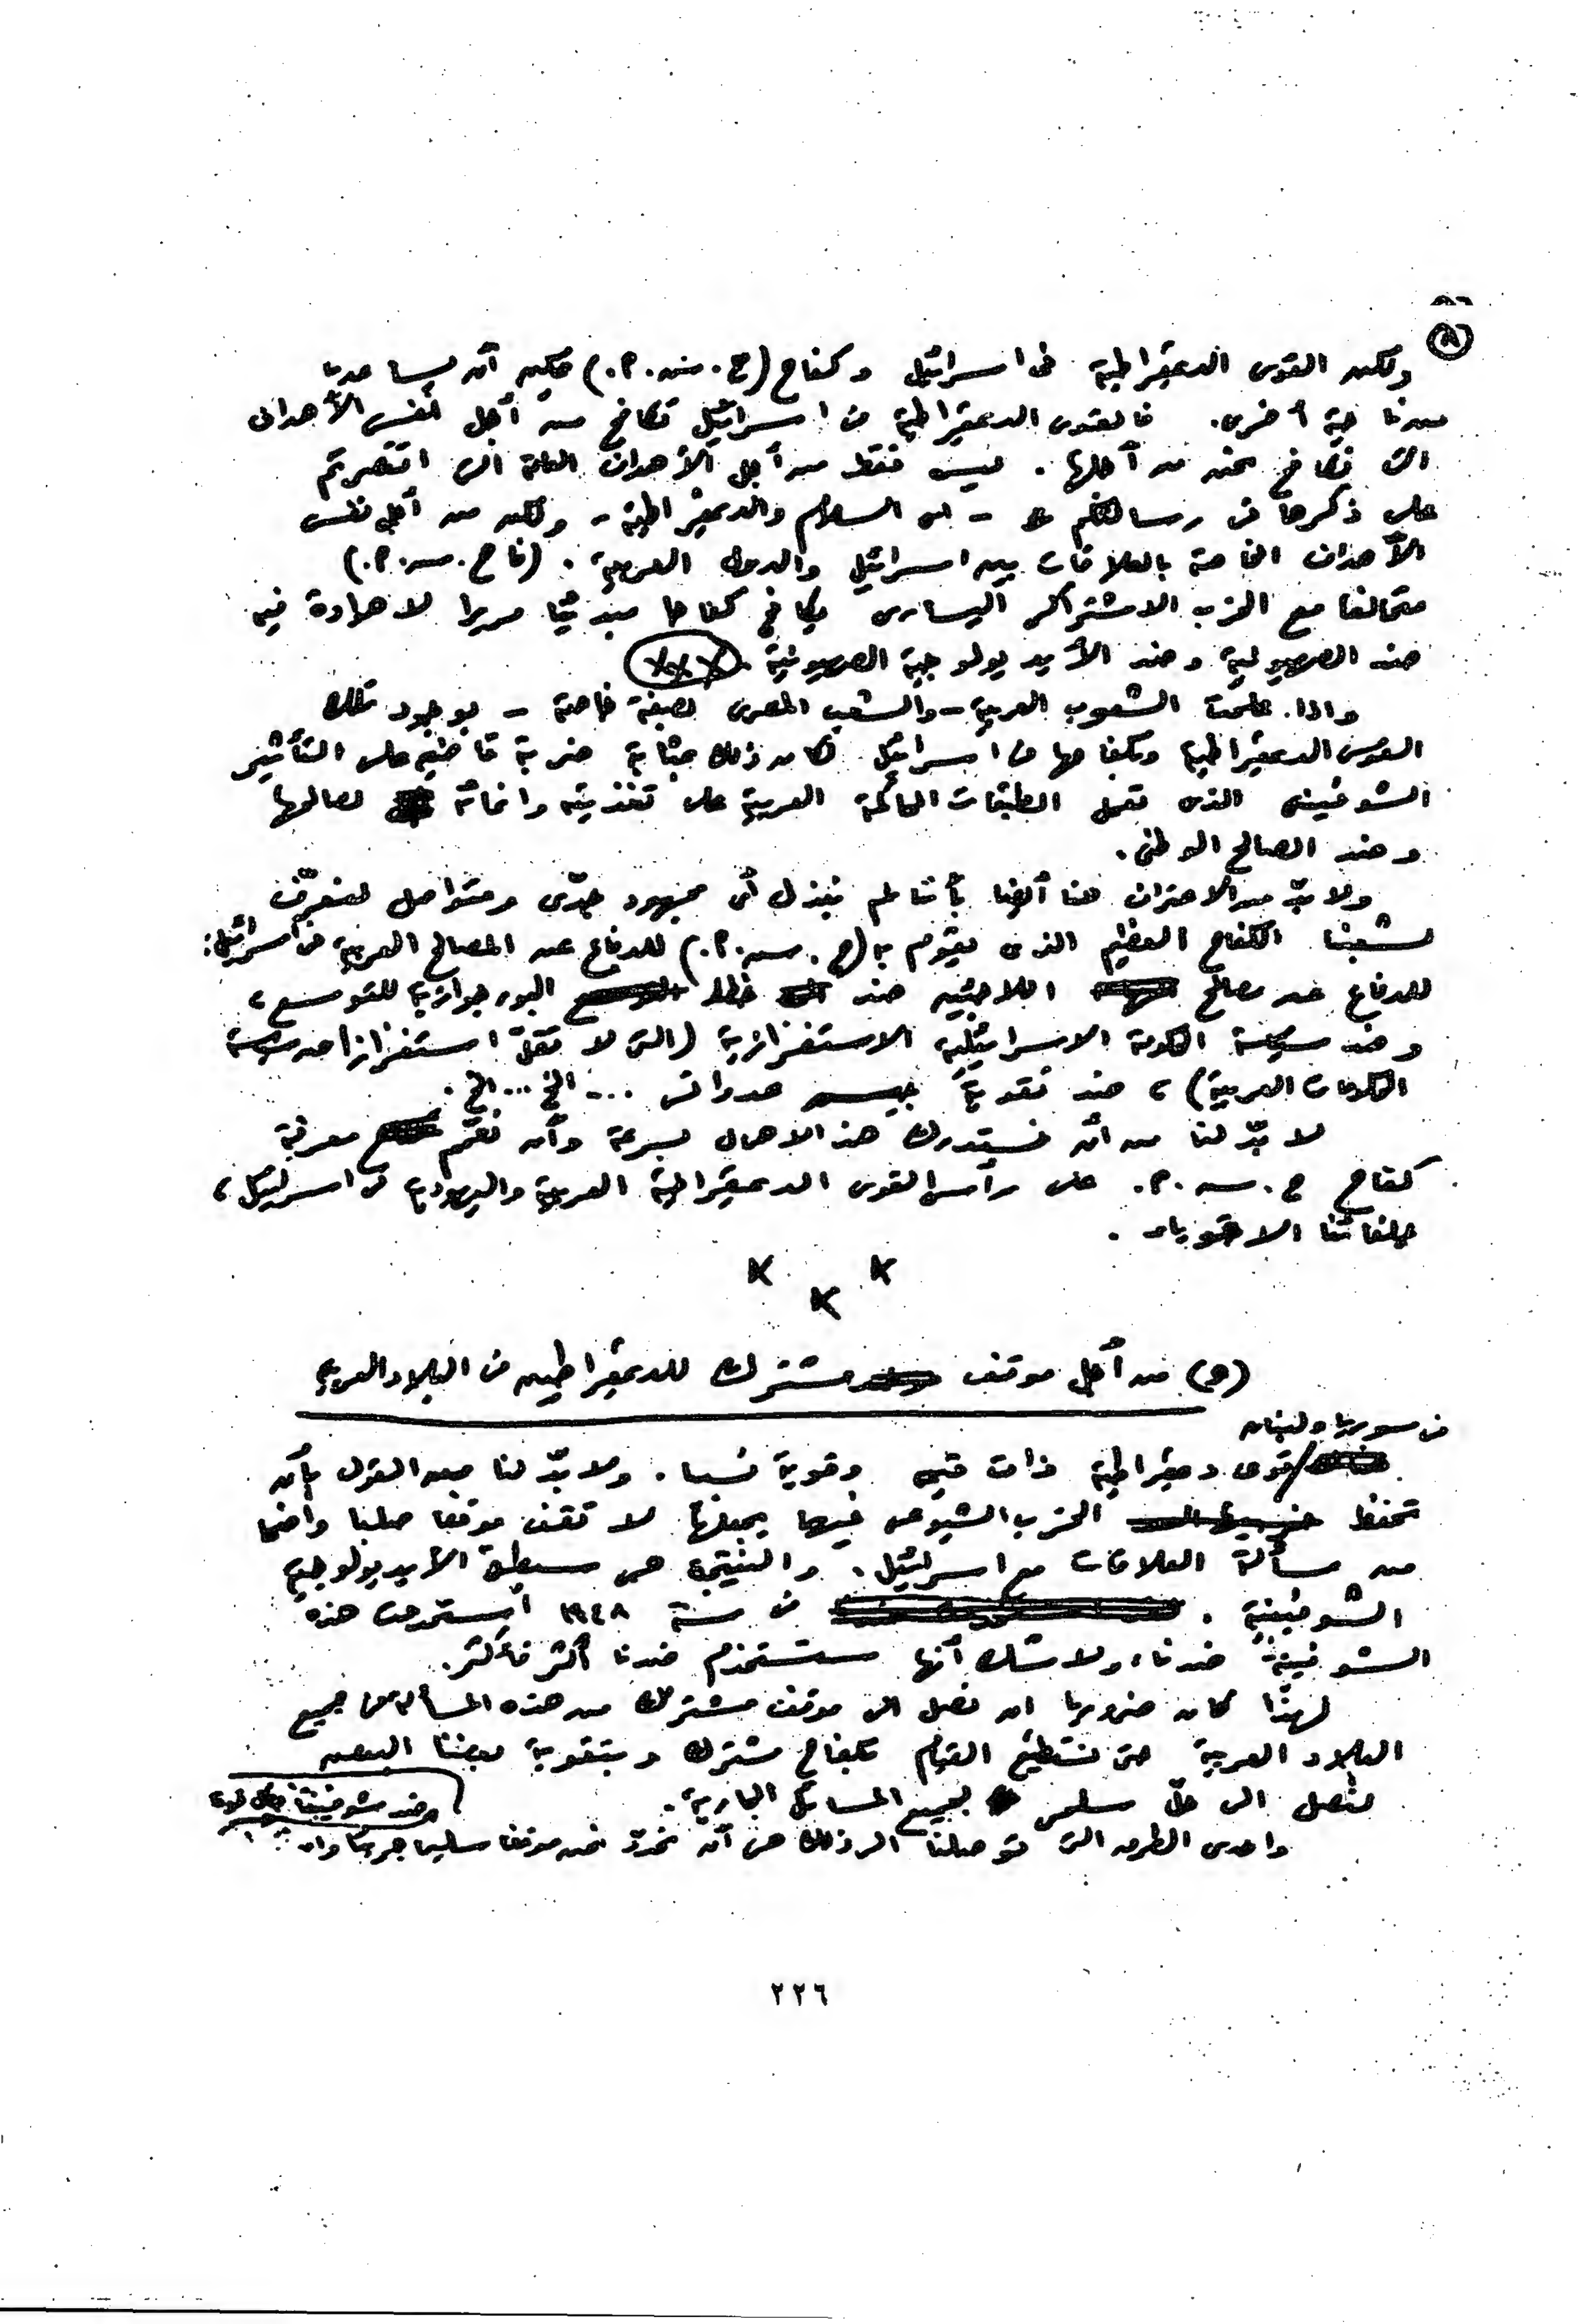 ٨
ولكن القوى الديمقراطية فى اسرائيل وكفاح (ح.ش.م.) يمكن أن يساعدنا
من ناحية أخرى. فالقوى الديمقراطية فى اسرائيل تكافح من أجل نفس الأهداف
التى نكافح نحن من أجلها. ليس فقط من أجل الأهداف العامة التى اقتصرتم
على ذكرها فى رسالتكم - أى السلام والديمقراطية - ولكن من أجل نفس
الأهداف الخاصة بالعلاقات بين اسرائيل والدول العربية. (فاح.ش.م.)
متحالفا مع الحزب الاشتراكى اليسارى يكافح كفاحا مبدئيا مريرا لا هوادة فيه
ضد الصهيونية وضد الأيديولوجية الصهيونية. XXX
واذا علمت الشعوب العربية - والشعب المصرى بصفة خاصة - بوجود تلك
القوى الديمقراطية وبكفاحها فى اسرائيل لكان ذلك بمثابة ضربة قاضية على التأثير
الشوفينى الذى تعمل الطبقات الحاكمة العربية على تغذيته وانمائه لصالحها
وضد الصالح الوطنى.
ولا بدّ من الاعتراف هنا أيضا بأننا لم نبذل أى مجهود جدّى ومتواصل لنعرّف
لشعبنا الكفاح العظيم الذى يقوم به (ح.ش.م.) للدفاع عن المصالح العربية فى اسرائيل:
للدفاع عن مصالح اللاجئين ضد خطط البورجوازية للتوسع،
وضد سياسة الحكومة الاسرائيلية الاستفزازية (التى لا تقلّ استفزازا من سياسة
الحكومات العربية)، ضد تقوية جيش عدوانى ... الخ... الخ.
لا بدّ لنا من أن نستدرك هذا الاهمال بسرعة وأن نعمّم معرفة
كفاح ح.ش.م. على رأس القوى الديمقراطية العربية واليهودية فى اسرائيل،
حلفائنا الاقوياء.
x x
x
(ه) من أجل موقف مشترك للديمقراطيين فى البلاد العربية
فى سوريا ولبنان
قوى ديمقراطية ذات قيمة وقوية نسبيا. ولا بدّ لنا من القول بأن
تحفظ الحزب الشيوعى فيها يجعلها لا تقف موقفا صلبا واضحا
من مسألة العلاقات مع اسرائيل. والنتيجة هى سيطرة الأيديولوجية
الشوفينية. فى سنة ١٩٤٨ استخدمت هذه
الشوفينية ضدنا، ولا شك أنها ستستخدم ضدنا أكثر فأكثر.
لهذا كان ضروريا ان نصل الى موقف مشترك من هذه المسألة فى جميع
البلاد العربية حتى نستطيع القيام بكفاح مشترك وبتقوية بعضنا البعض
لنصل الى حلّ سلمى لجميع المسائل الجارية.
واحدى الطرق التى توصلنا الى ذلك هى أن نحدّد نحن موقفا سليما جريئا وان
وضد شوفينيتنا
٢٢٦